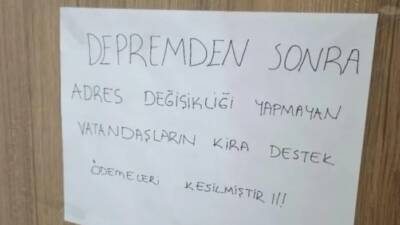 DEPREMDEN SONRA
ADRES DEĞİŞİKLİĞİ YAPMAYAN
VATANDAŞLARIN KİRA DESTEK
ÖDEMELERİ KESİLMİŞTİR !!!